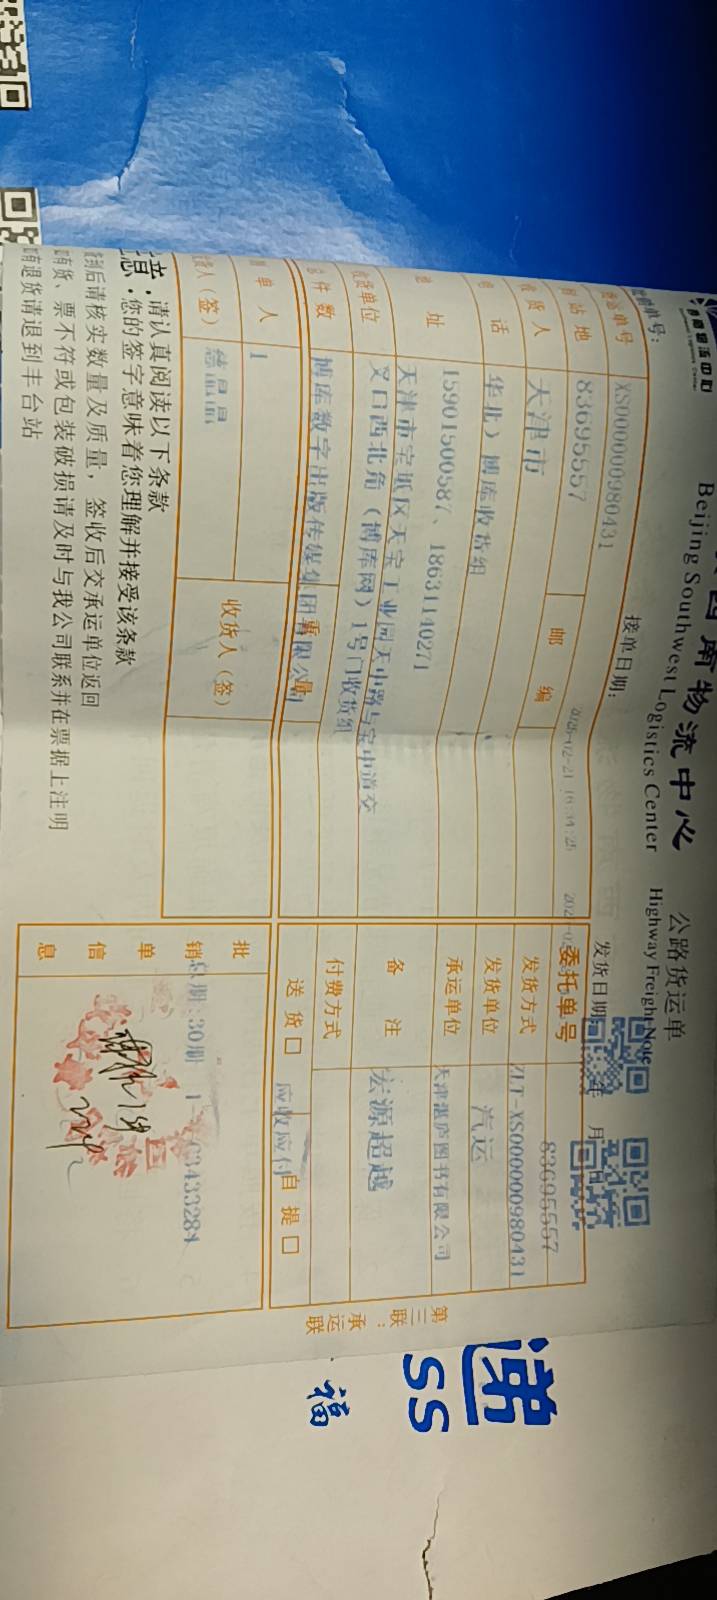 西南物流中心 公路货运单
Beijing Southwest Logistics Center Highway Freight Note
接单日期：
发货日期 年 月 日
XS000000980431
委托单号
83695557
83695557
邮 编
发货方式
ZLT-XS000000980431
天津市
发货单位
汽运
话
华北）博库收货组
承运单位
天津湛庐图书有限公司
址
15901500587、18631140271
备 注
宏源超越
天津市宝坻区天宝工业园天中路与宝中道交
叉口西北角（博库网）1号门收货组
收货单位
博库数字出版传媒集团有限公司
件 数
重 量
付费方式
送 货 口
应收应付
自 提 口
单 人
1
收货人（签）
人（签）
批
销
单
信
息
总期:30期
63433284
第三联：承运联
请认真阅读以下条款
您的签字意味着您理解并接受该条款
后请核实数量及质量，签收后交承运单位返回
货、票不符或包装破损请及时与我公司联系并在票据上注明
退货请退到丰台站
递
SS
福